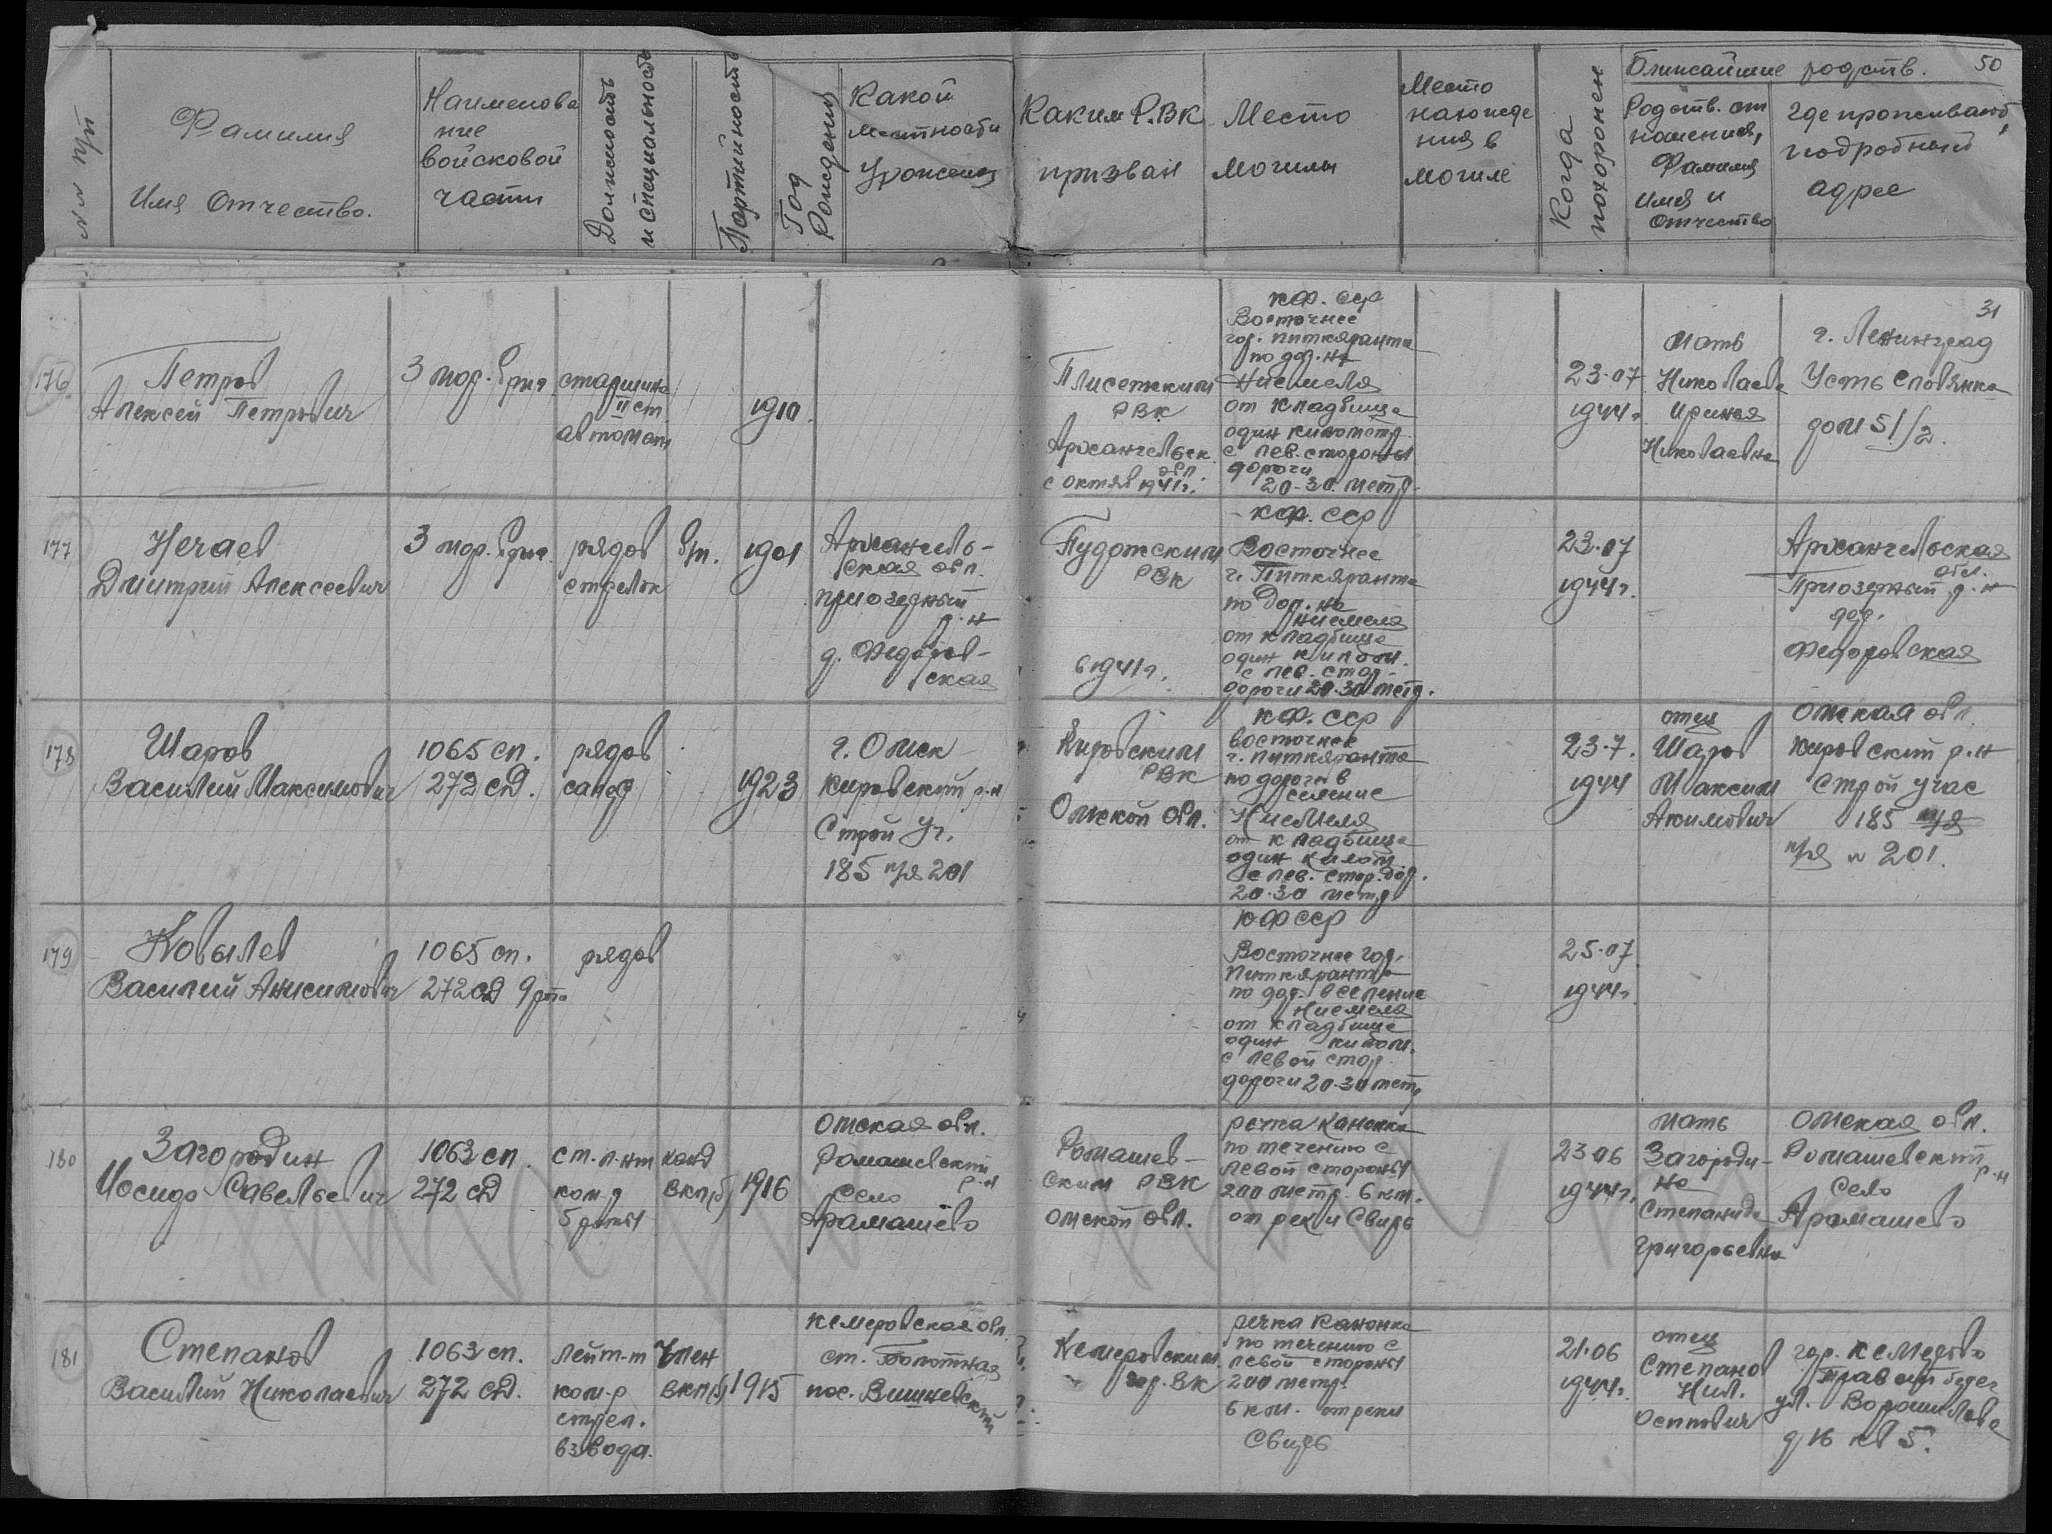 50
№№ п/п
Фамилия
Имя Отчество.
Наименова
ние
войсковой
части
Должность
и специальность
Партийность
Год
Рождения
Какой
местности
Уроженец
Каким Р.ВК
призван
Место
могилы
Место
нахожде
ния в
могиле
Когда
похоронен
Ближайшие родств.
Родств. от
ношения,
Фамилия
Имя и
Отчество
где проживают,
подробный
адрес
31
176
Петров
Алексей Петрович
3 мор. бриг
старшина
II ст
автомат
1910
Плисетским
РВК
Архангельск.
обл.
с октяб 1941г.
КФ. ССР
Восточнее
гор. Питкяранта
по дор. на
Ниемеля
от кладбища
один километр
с лев. стороны
дороги
20-30 метр.
23.07
1944г
мать
Николаева
Ирина
Николаевна
г. Ленинград
Усть Словянка
дом 51/2.
177
Нечаев
Дмитрий Алексеевич
3 мор. бриг.
рядов
стрелок
б/п.
1901
Архангель-
ская обл.
приозерный
р.н
д. Федоров-
ская
Пудожским
РВК
в 1941г.
КФ. ССР
Восточнее
г. Питкяранта
по дор. на
Ниемеля
от кладбища
один килом.
с лев. стор.
дороги 20-30 метр.
23.07
1944г.
Архангельская
обл.
Приозерный р.н
дер.
Федоровская
178
Шаров
Василий Максимович
1065 сп.
272 сД.
рядов
сапер
1923
г. Омск
кировский р.н
Строй уч.
185 п/я 201
Кировским
РВК
Омской обл.
КФ. ССР
восточнее
г. Питкяранта
по дороге в
селение
Ниемеля
от кладбища
один килом.
с лев. стор. дор.
20-30 метр
23.7.
1944
отец
Шаров
Максим
Акимович
Омская обл.
кировский р.н
Строй учас
185
п/я № 201.
179
Ковылев
Василий Анисимович
1065 сп.
272 сД 9 рта
рядов
КФССР
Восточнее гор.
Питкяранта
по дор. в селение
Ниемеля
от кладбища
один килом.
с левой стор.
дороги 20-30 метр
25.07
1944г.
180
Загородин
Иосиф Савельевич
1063 сп
272 сД
ст. л-нт
ком-р
5 роты
канд
ВКП(б)
1916
Омская обл.
Ромашевский
р.н
село
Арамашево
Ромашев-
ским РВК
Омской обл.
речка Каномка
по течению с
левой стороны
200 метр. 6 км.
от реки Свирь
23 06
1944г.
мать
Загороди-
на
Степанида
Григорьевна
Омская обл.
Ромашевский
р.н
Село
Арамашево
181
Степанов
Василий Николаевич
1063 сп.
272 сД.
лейт-т
ком-р
стрел.
взвода.
Член
ВКП(б)
1915
Кемеровская обл.
ст. Болотная
пос. Вишневский
Кемеровским
гор. ВК
речка Каномка
по течению с
левой стороны
200 метр.
6 км. от реки
Свирь
21.06
1944г.
отец
Степанов
Ник.
Осипович
гор. Кемерово
Правый берег
ул. Ворошилова
д 16 кв 5.